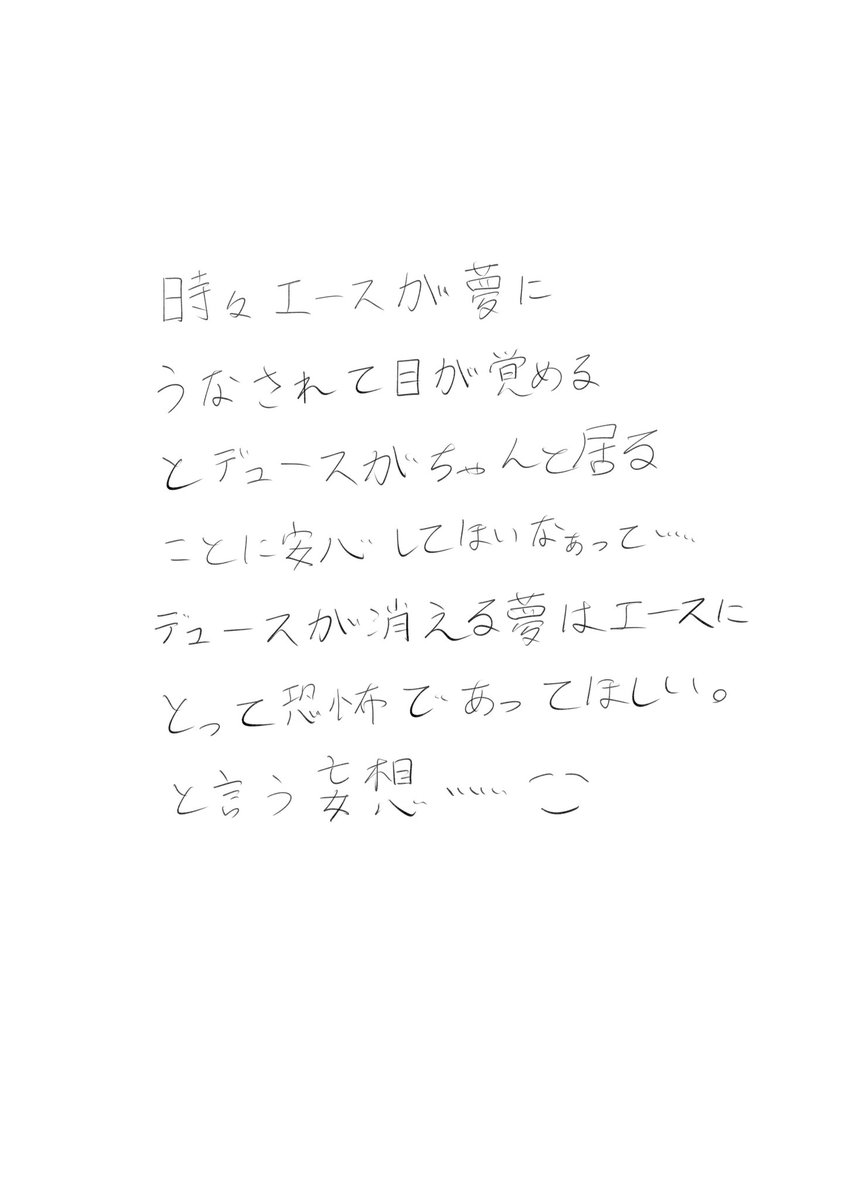 時々エースが夢に
うなされて目が覚める
とデュースがちゃんと居る
ことに安心してほいなぁって……
デュースが消える夢はエースに
とって恐怖であってほしい。
と言う妄想……